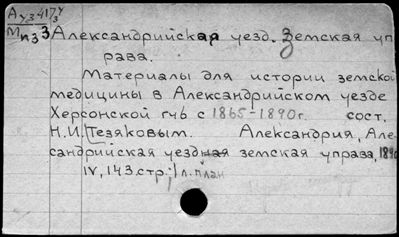 А у3 417/3
М п3 3
Александрийская уезд. Земская уп
рава.
Материалы для истории земской
медицины в Александрийском уезде
Херсонской губ с 1865-1890г. сост.
Н.И. Тезяковым. Александрия, Але-
сандрийская уездная земская управа, 1890
IV, 143.стр. 1 л. план